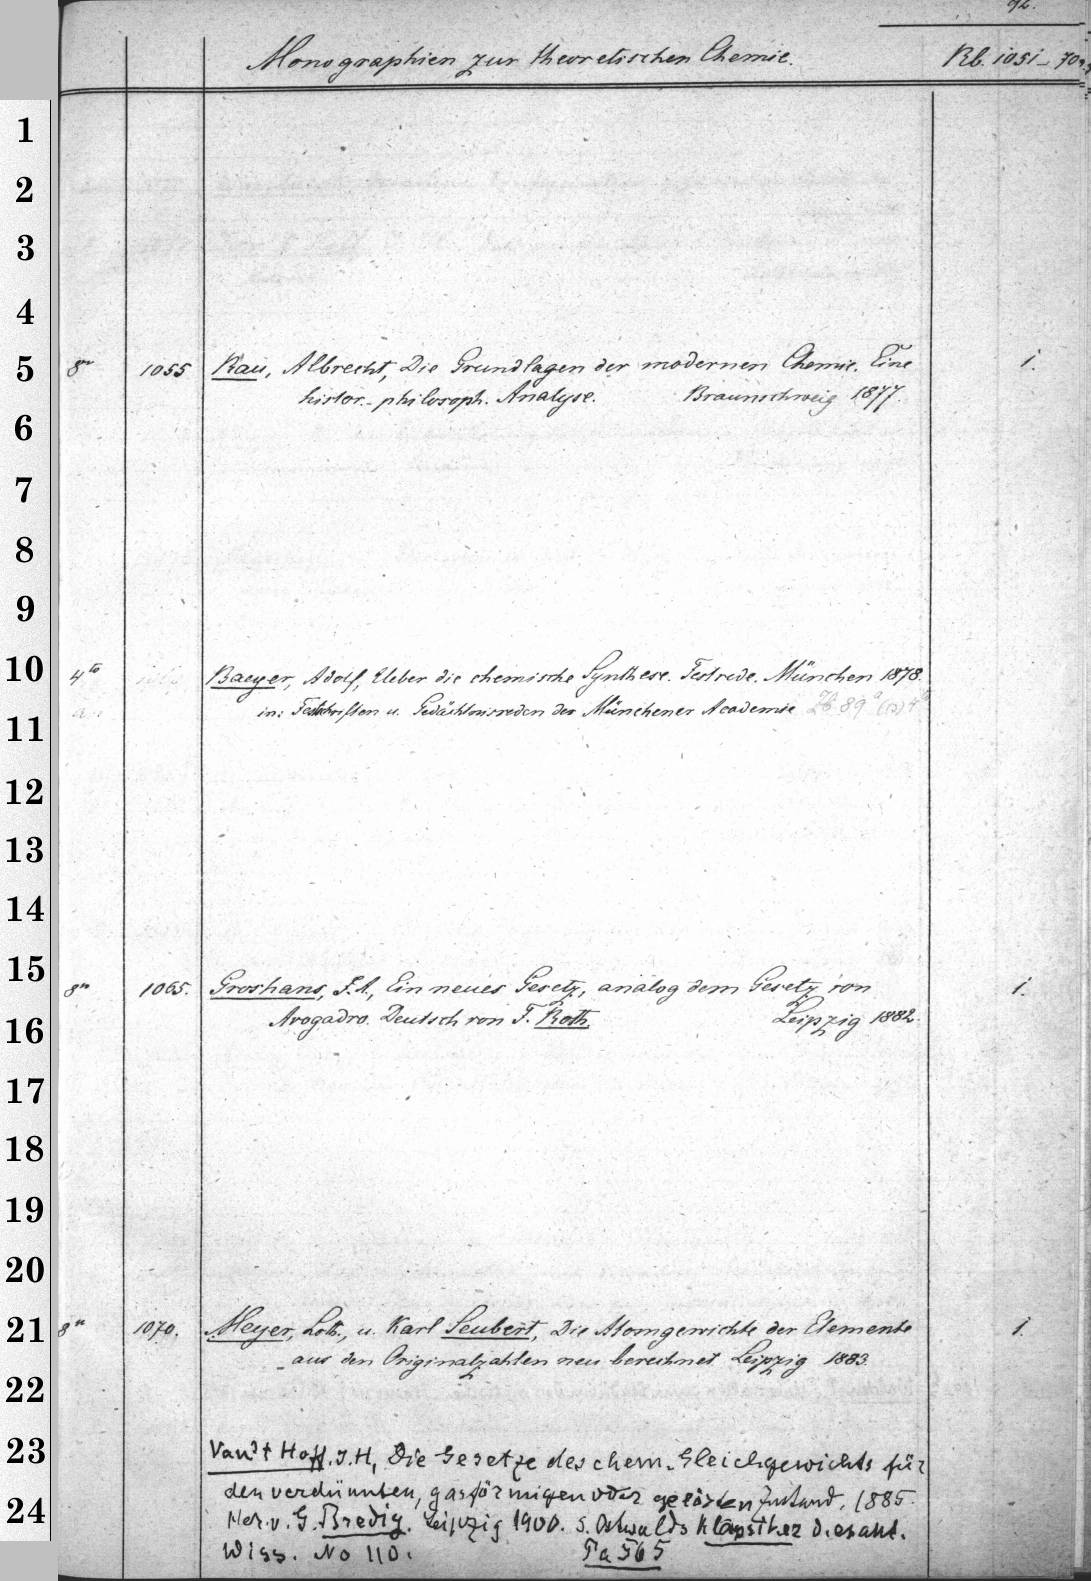 92.
Monographien zur theoretischen Chemie. Rb. 1051-70
1
2
3
4
5 8vo 1055 Rau, Albrecht, Die Grundlagen der modernen Chemie. Eine 1.
histor.-philosoph. Analyse. Braunschweig 1877.
6
7
8
9
10 4to Baeyer, Adolf, Ueber die chemische Synthese. Festrede. München 1878.
in: Festschriften u. Gedächtnisreden der Münchener Academie
11
12
13
14
15 8vo 1065. Groshans, F.A., Ein neues Gesetz, analog dem Gesetz von 1.
16 Avogadro. Deutsch von F. Roth. Leipzig 1882.
17
18
19
20
21 8vo 1070. Meyer, Loth., u. Karl Seubert, Die Atomgewichte der Elemente 1.
aus den Originalzahlen neu berechnet Leipzig 1883.
22
23 Van't Hoff. J.H, Die Gesetze des chem. Gleichgewichts für
24 den verdünnten, gasförmigen oder gelösten Zustand. 1885.
v. G. Bredig. Leipzig 1900. s. Ostwalds Klassiker d. exakt.
Wiss. No 110. Pa 565